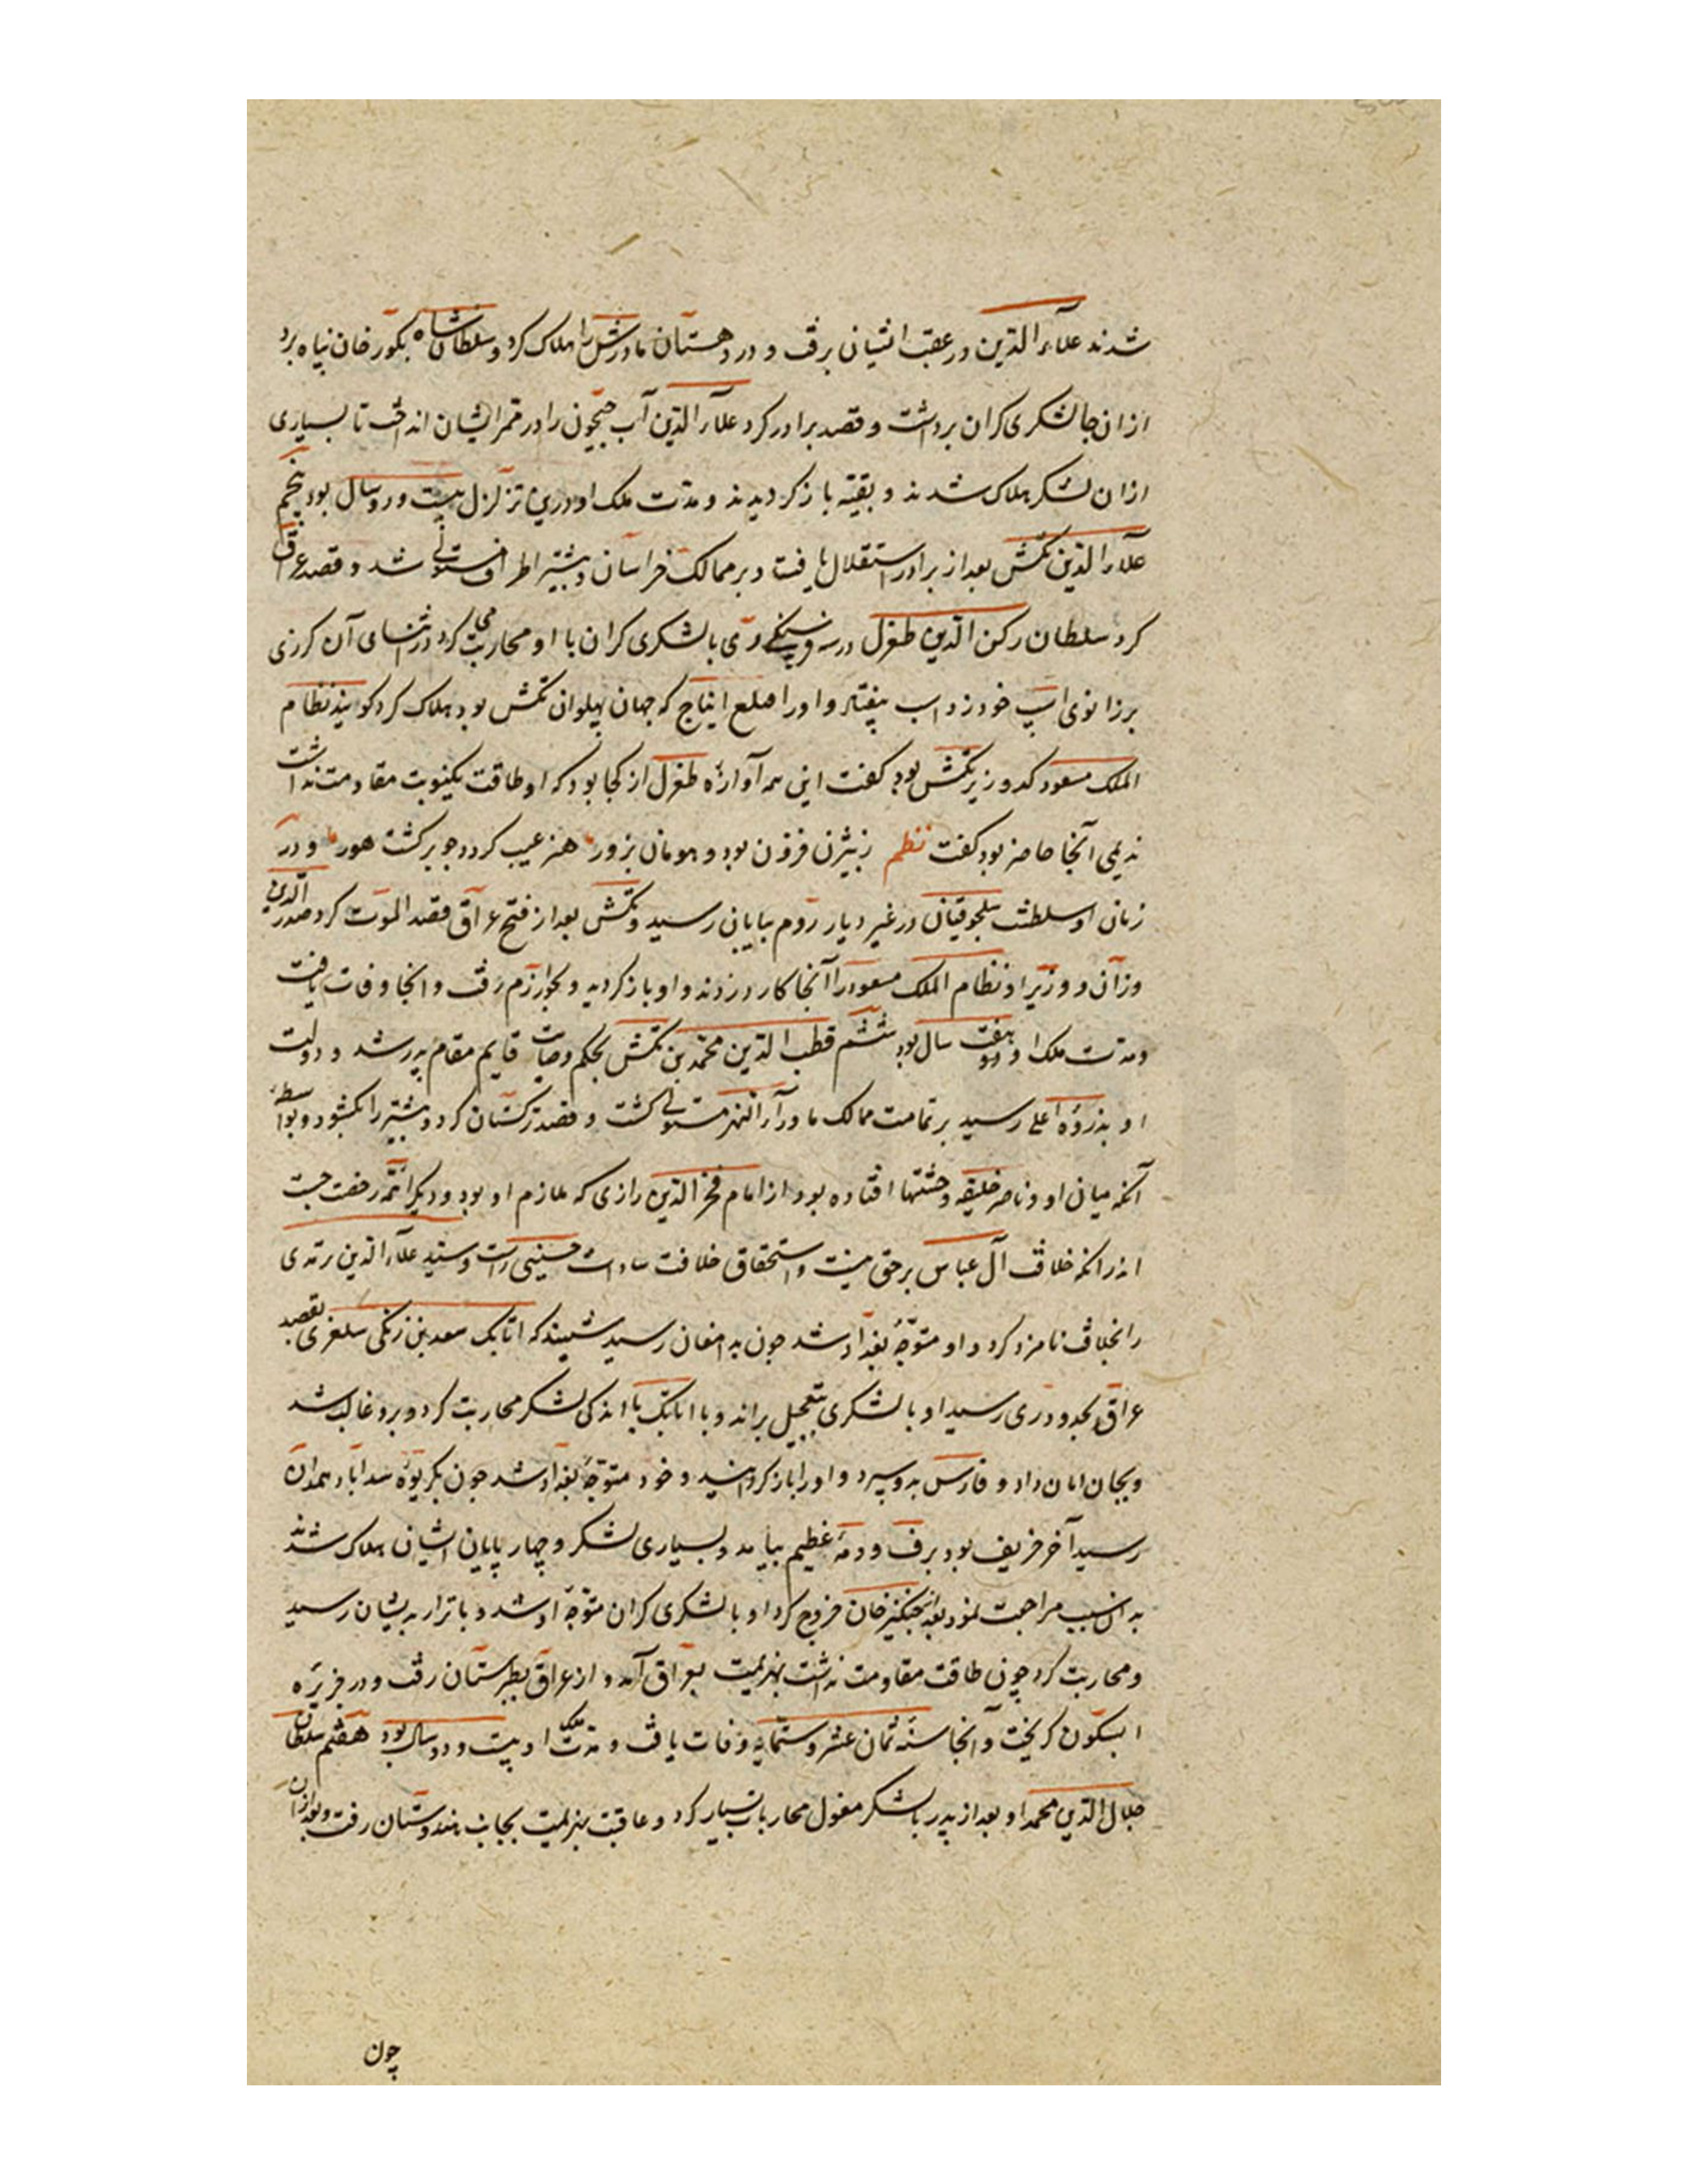 شدند علاء الدین در عقب ایشان برفت و در دهستان مادرش را هلاک کرد و سلطان شاه بکور خان پناه برد
از ان جا لشکری کران برداشت و قصد برادر کرد علاء الدین آب جیحون را در ممر ایشان انداخت تا بسیاری
از ان لشکر هلاک شدند و بقیه باز کردیدند و مدت ملک او درین تزلزل بیست و دو سال بود پنجم
علاء الدین تکش بعد از برادر استقلال یافت و بر ممالک خراسان و بیشتر اطراف مستولی شد و قصد عراق
کرد سلطان رکن الدین طغرل در سه فرسنکی ری با لشکری کران با او محاربت می کرد در اثنای آن کرزی
بر زانوی اسپ خود زد اسب بیفتاد و او را قتلغ اینانج که جهان پهلوان تکش بود هلاک کرد کویند نظام
الملک مسعود که وزیر تکش بود کفت این همه آوازهٔ طغرل از کجا بود که او طاقت یکنوبت مقاومت نداشت
ندیمی آنجا حاضر بود کفت نظم ز بیژن فزون بود هومان بزور هنر عیب کردد چو برکشت هور و در
زمان او سلطنت سلجوقیان در غیر دیار روم بپایان رسید و تکش بعد از فتح عراق قصد الموت کرد صدر الدین
وزان و وزیر او نظام الملک مسعود را آنجا کارد زدند و او باز کردید و بخوارزم رفت و انجا وفات یافت
و مدت ملک او هفت سال بود ششم قطب الدین محمد بن تکش بحکم وصایت قایم مقام پدر شد و دولت
او بذروهٔ اعلی رسید بر تمامت ممالک ماوراء النهر مستولی کشت و قصد ترکستان کرد و بیشتر را بکشود و بواسطهٔ
آنکه میان او و ناصر خلیفه وحشتها افتاده بود از امام فخر الدین رازی که ملازم او بود و دیکر ائمه رخصت جست
اندر انکه خلافت آل عباس بر حق نیست و استحقاق خلافت سادات حسینی راست و سید علاء الدین ترمدی
را بخلافت نامزد کرد و او متوجه بغداد شد چون بدامغان رسید شنید که اتابک سعد بن زنکی سلغری بقصد
عراق بحدود ری رسید او با لشکری بتعجیل براند و با اتابک با اندکی لشکر محاربت کرد و برو غالب شد
و بجان امان داد و فارس بدو سپرد و او را باز کردانید و خود متوجه بغداد شد چون بکریوهٔ اسدآباد همدان
رسید آخر خریف بود برف و دمهٔ عظیم بیامد و بسیاری لشکر و چهار پایان ایشان هلاک شدند
بدان سبب مراجعت نمود بعد ازان چنکیز خان خروج کرد او با لشکری کران متوجه او شد و باترار بدیشان رسید
و محاربت کرد چون طاقت مقاومت نداشت بهزیمت بعراق آمد و از عراق بطبرستان رفت و در جزیره
ابسکون کریخت و آنجا سنه ثمان عشر و ستمایه وفات یافت و مدت ملک او بیست و دو سال بود هفتم سلطان
جلال الدین محمد او بعد از پدر با لشکر مغول محاربات بسیار کرد و عاقبت بهزیمت بجانب هندوستان رفت و بعد ازان
چون